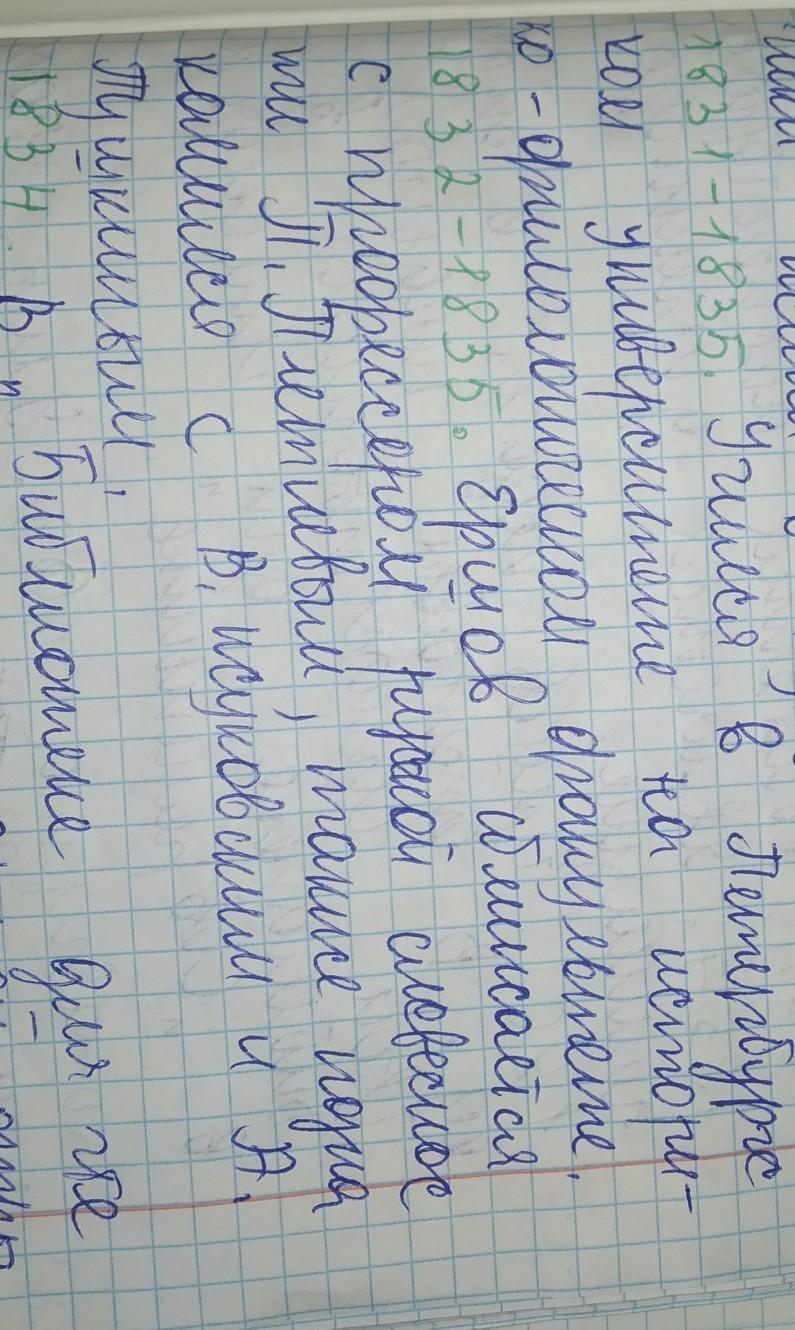 1831-1835. Учился в Петербургс
ком университете на истори-
ко-филологическом факультете.
1832-1835. Ершов сближается
с профессером русской словеснос
ти П. Плетневым, также позна
комился с В. Жуковским и А.
Пушкиным,
1834. В "Библиотеке для чте